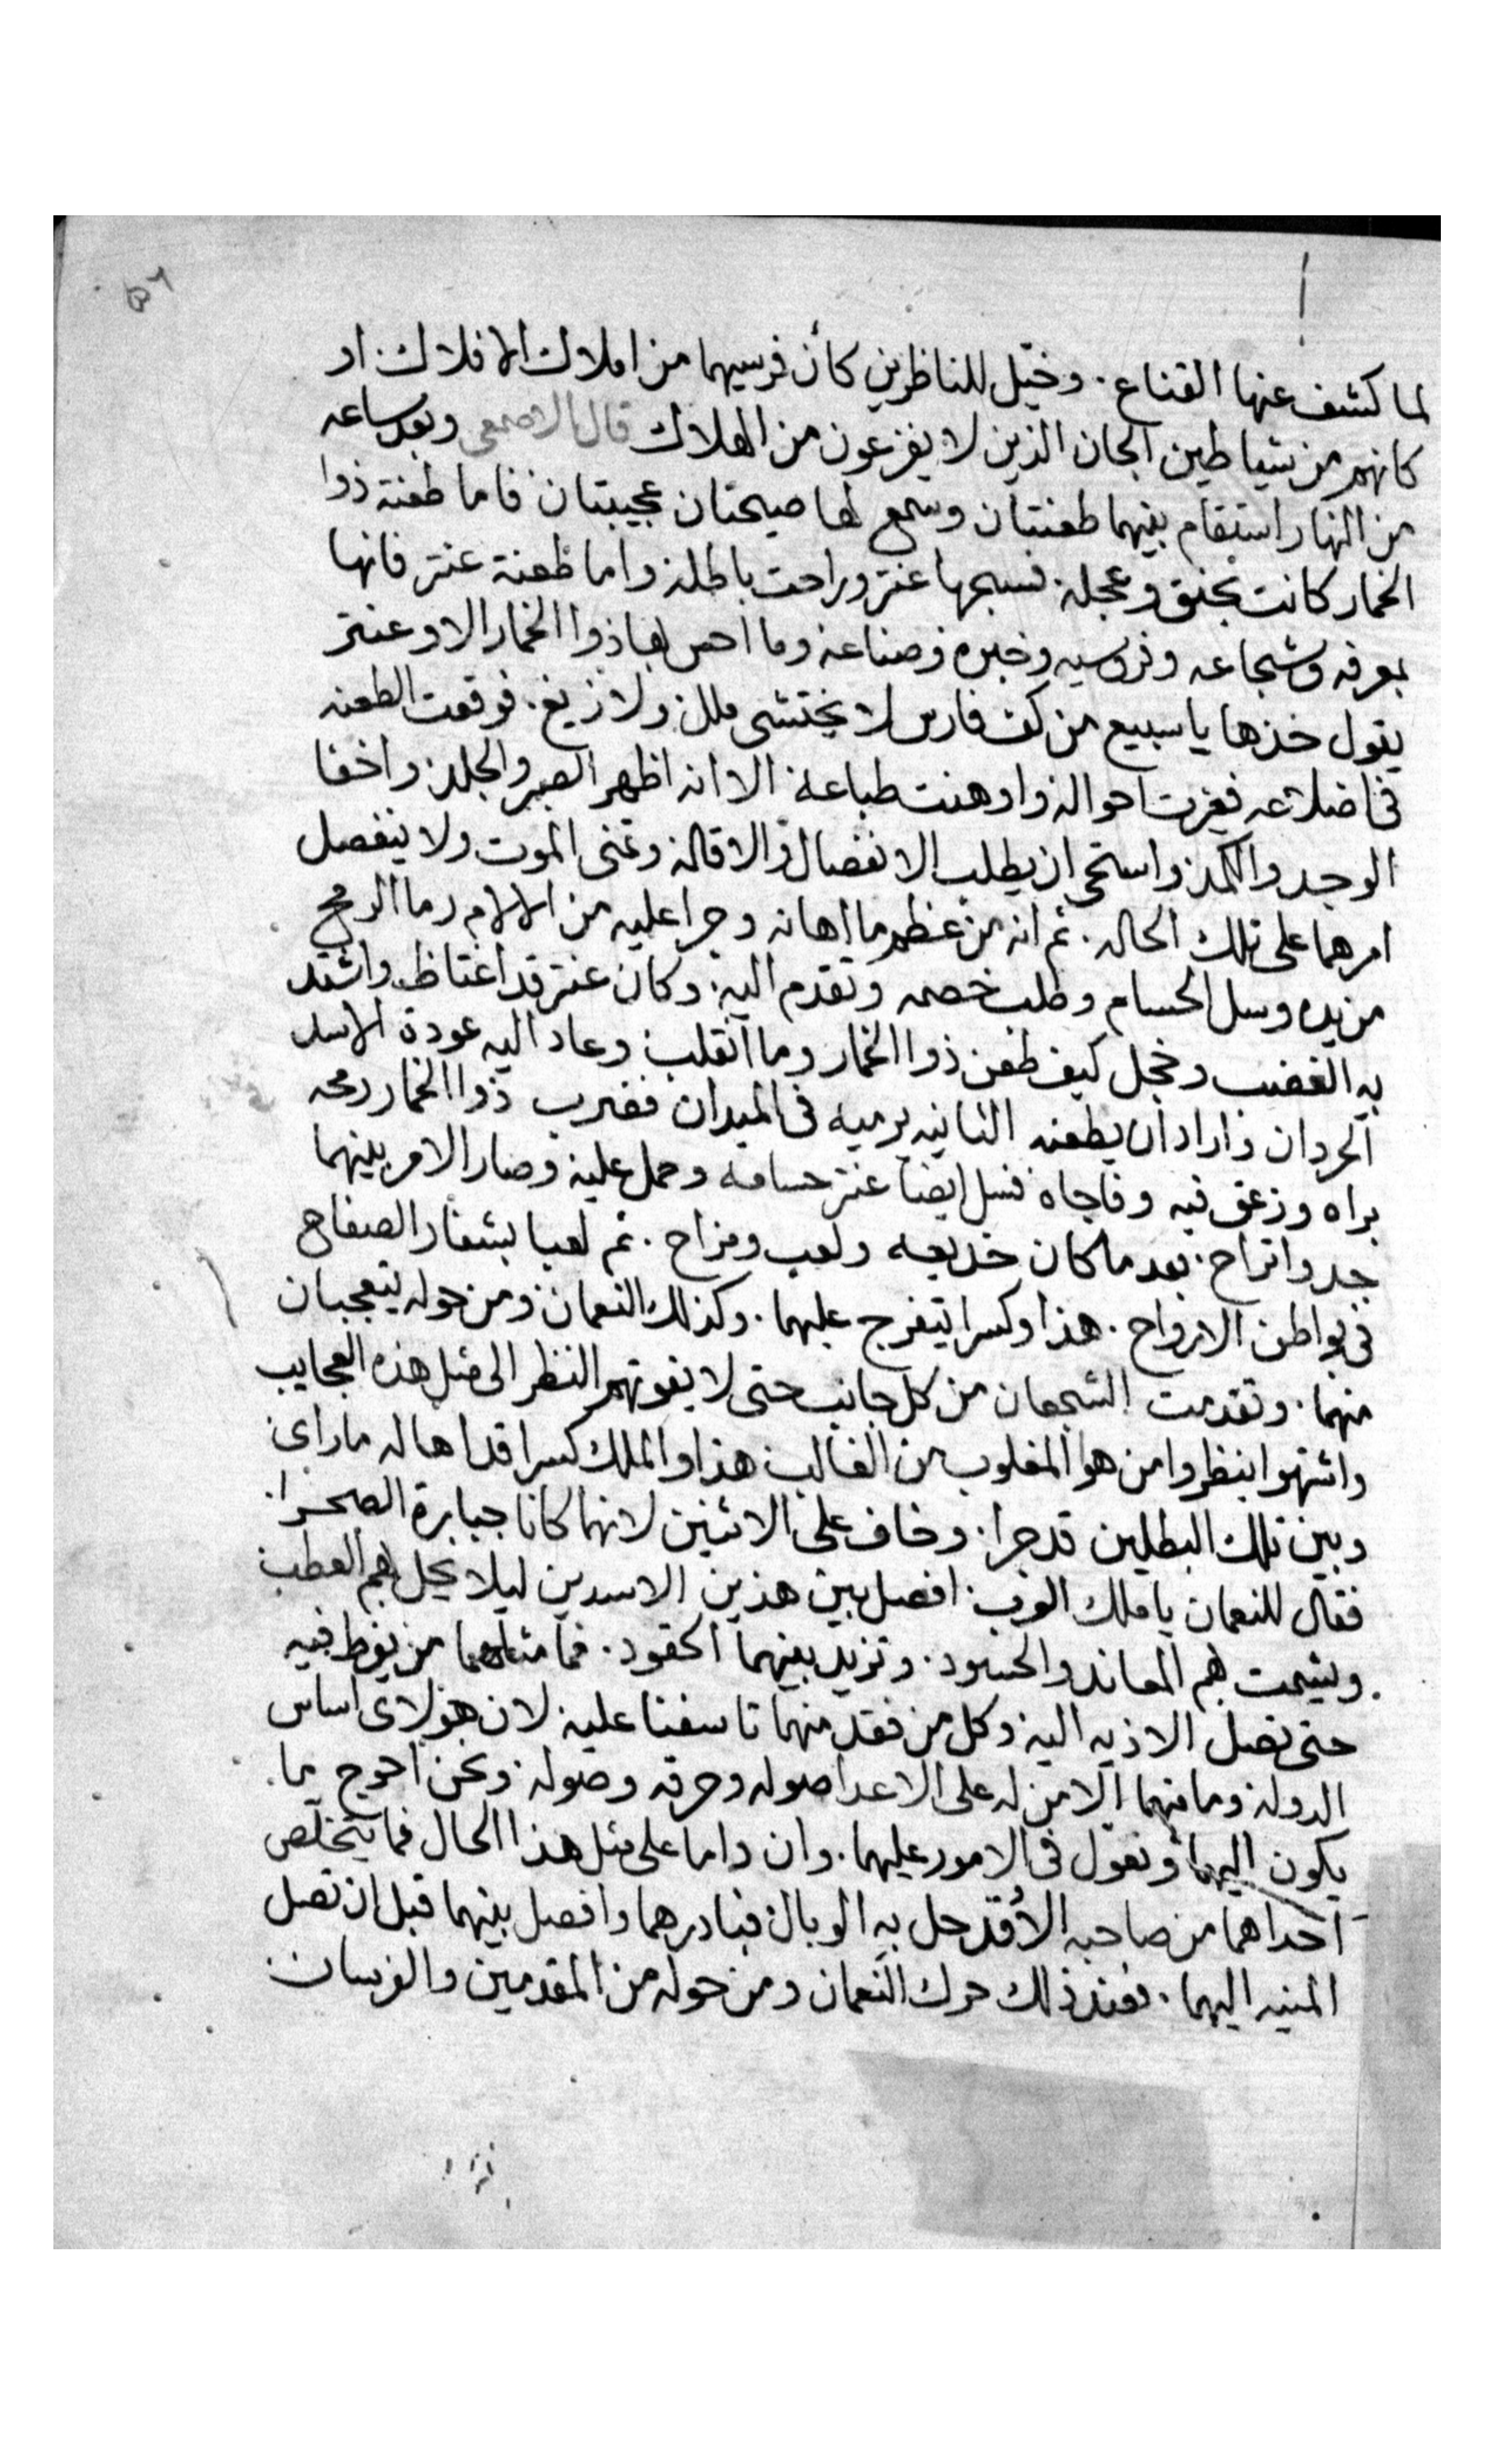 لما كشف عنها القناع. وخيّل للناظرين كأن فرسيهما من املاك الافلاك. او
كانهم من شياطين الجان الذين لا يفزعون من الهلاك قال الاصمعي وبعد ساعه
من النهار استقام بينهما طعنتان وسمع لها صيحتان عجيبتان فاما طعنة ذوا
الخمار كانت بحنق وعجله. فسبحها عنتر وراحت باطله واما طعنة عنتر فانها
بمعرفه وشجاعه وفروسيه وخبره وصناعه وما احس لها ذوا الخمار الا وعنتر
يقول خذها يا سبيع من كف فارس لا يختشي ملل ولا زيغ. فوقعت الطعنه
في اضلاعه فغيرت احواله واوهنت طباعه الا انه اظهر الصبر والجلد واخفا
الوجد والكمد واستحى ان يطلب الانفصال والاقاله وتمنى الموت ولا ينفصل
امرهما على تلك الحاله. ثم انه من عظم ما اهانه وجرا عليه من الالام رما الرمح
من يده وسل الحسام وطلب خصمه وتقدم اليه. وكان عنتر قد اغتاظ واشتد
به الغضب وخجل كيف طعن ذوا الخمار وما انقلب وعاد اليه عودة الاسد
الحردان واراد ان يطعنه الثانيه يرميه في الميدان فضرب ذوا الخمار رمحه
براه وزعق فيه وفاجاه فسل ايضا عنتر حسامه وحمل عليه وصار الامر بينهما
جد واتراح. بعد ما كان خديعه ولعب ومزاح. ثم لعبا بشفار الصفاح
في بواطن الارواح. هذا وكسرا يتفرج عليهما. وكذلك النعمان ومن حوله يتعجبان
منهما. وتقدمت الشجعان من كل جانب حتى لا يفوتهم النظر الى مثل هذه العجايب
واشتهوا ينظروا من هو المغلوب من الغالب هذا والملك كسرا قد اهاله ما راى
وبين تلك البطلين قد جرا. وخاف على الاثنين لانهما كانا جبابرة الصحرا.
فقال للنعمان يا ملك العرب. افصل بين هذين الاسدين ليلا يحل بهم العطب
ويشمت بهم المعاند والحسود. وتزيد بينهما الحقود. فما مثلهما من يفرط فيه
حتى تصل الاذيه اليه وكل من فقد منهما تاسفنا عليه لان هولاى اساس
الدوله وما منهما الا من له على الاعدا صوله وحرقه وصوله. ونحن احوج بما
يكون اليهما ونعول في الامور عليهما. وان داما على مثل هذا الحال فما يتخلص
احداهما من صاحبه الا وقد حل به الوبال فبادرهما وافصل بينهما قبل ان تصل
المنيه اليهما. فعند ذلك حرك النعمان ومن حوله من المقدمين والفرسان